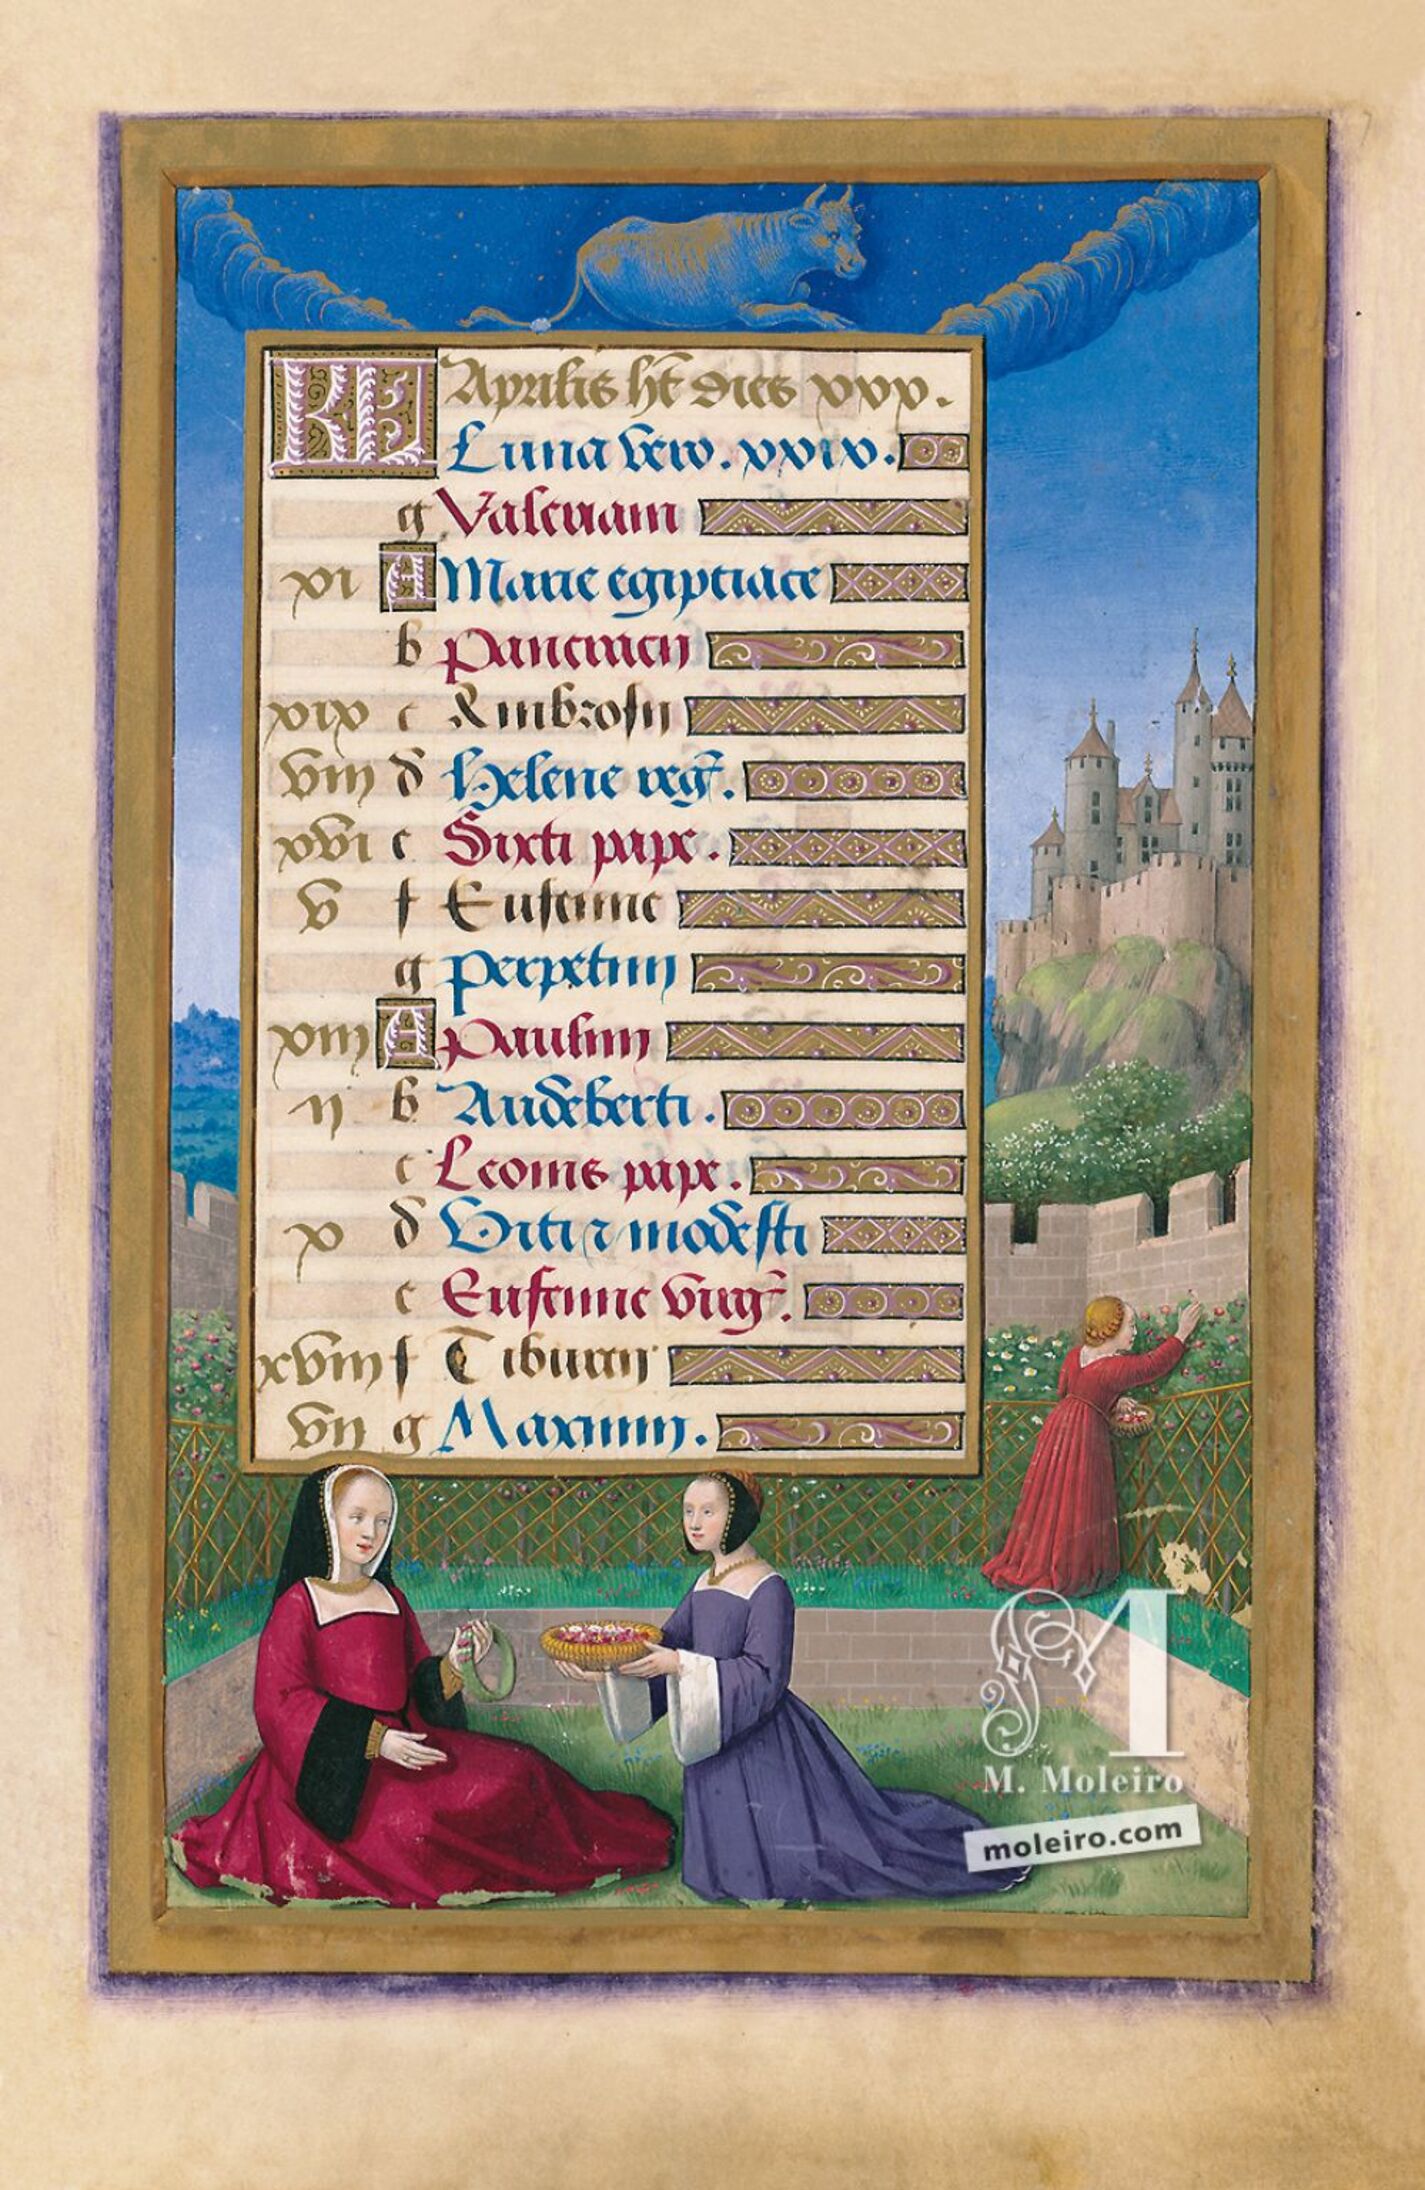 KL Aprilis ht dies xxx.
Luna vero. xxix.
g Valeriani
xi A Marie egiptiace
b pancracij
xix c Ambrosij
viij d Helene reg.
xvi e Sixti pape.
v f Eufemie
g perpetuij
xiij A paulinj
ij b Audeberti.
c Leonis pape.
x d Viti z modesti
e Eufemie virg.
xviij f Tiburcij
vij g Maximij.
M
M. Moleiro
moleiro.com